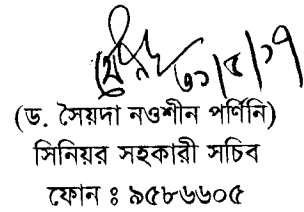 ৩১/৫/১৭
(ড. সৈয়দা নওশীন পর্ণিনি)
সিনিয়র সহকারী সচিব
ফোন ঃ ৯৫৮৬৬০৫